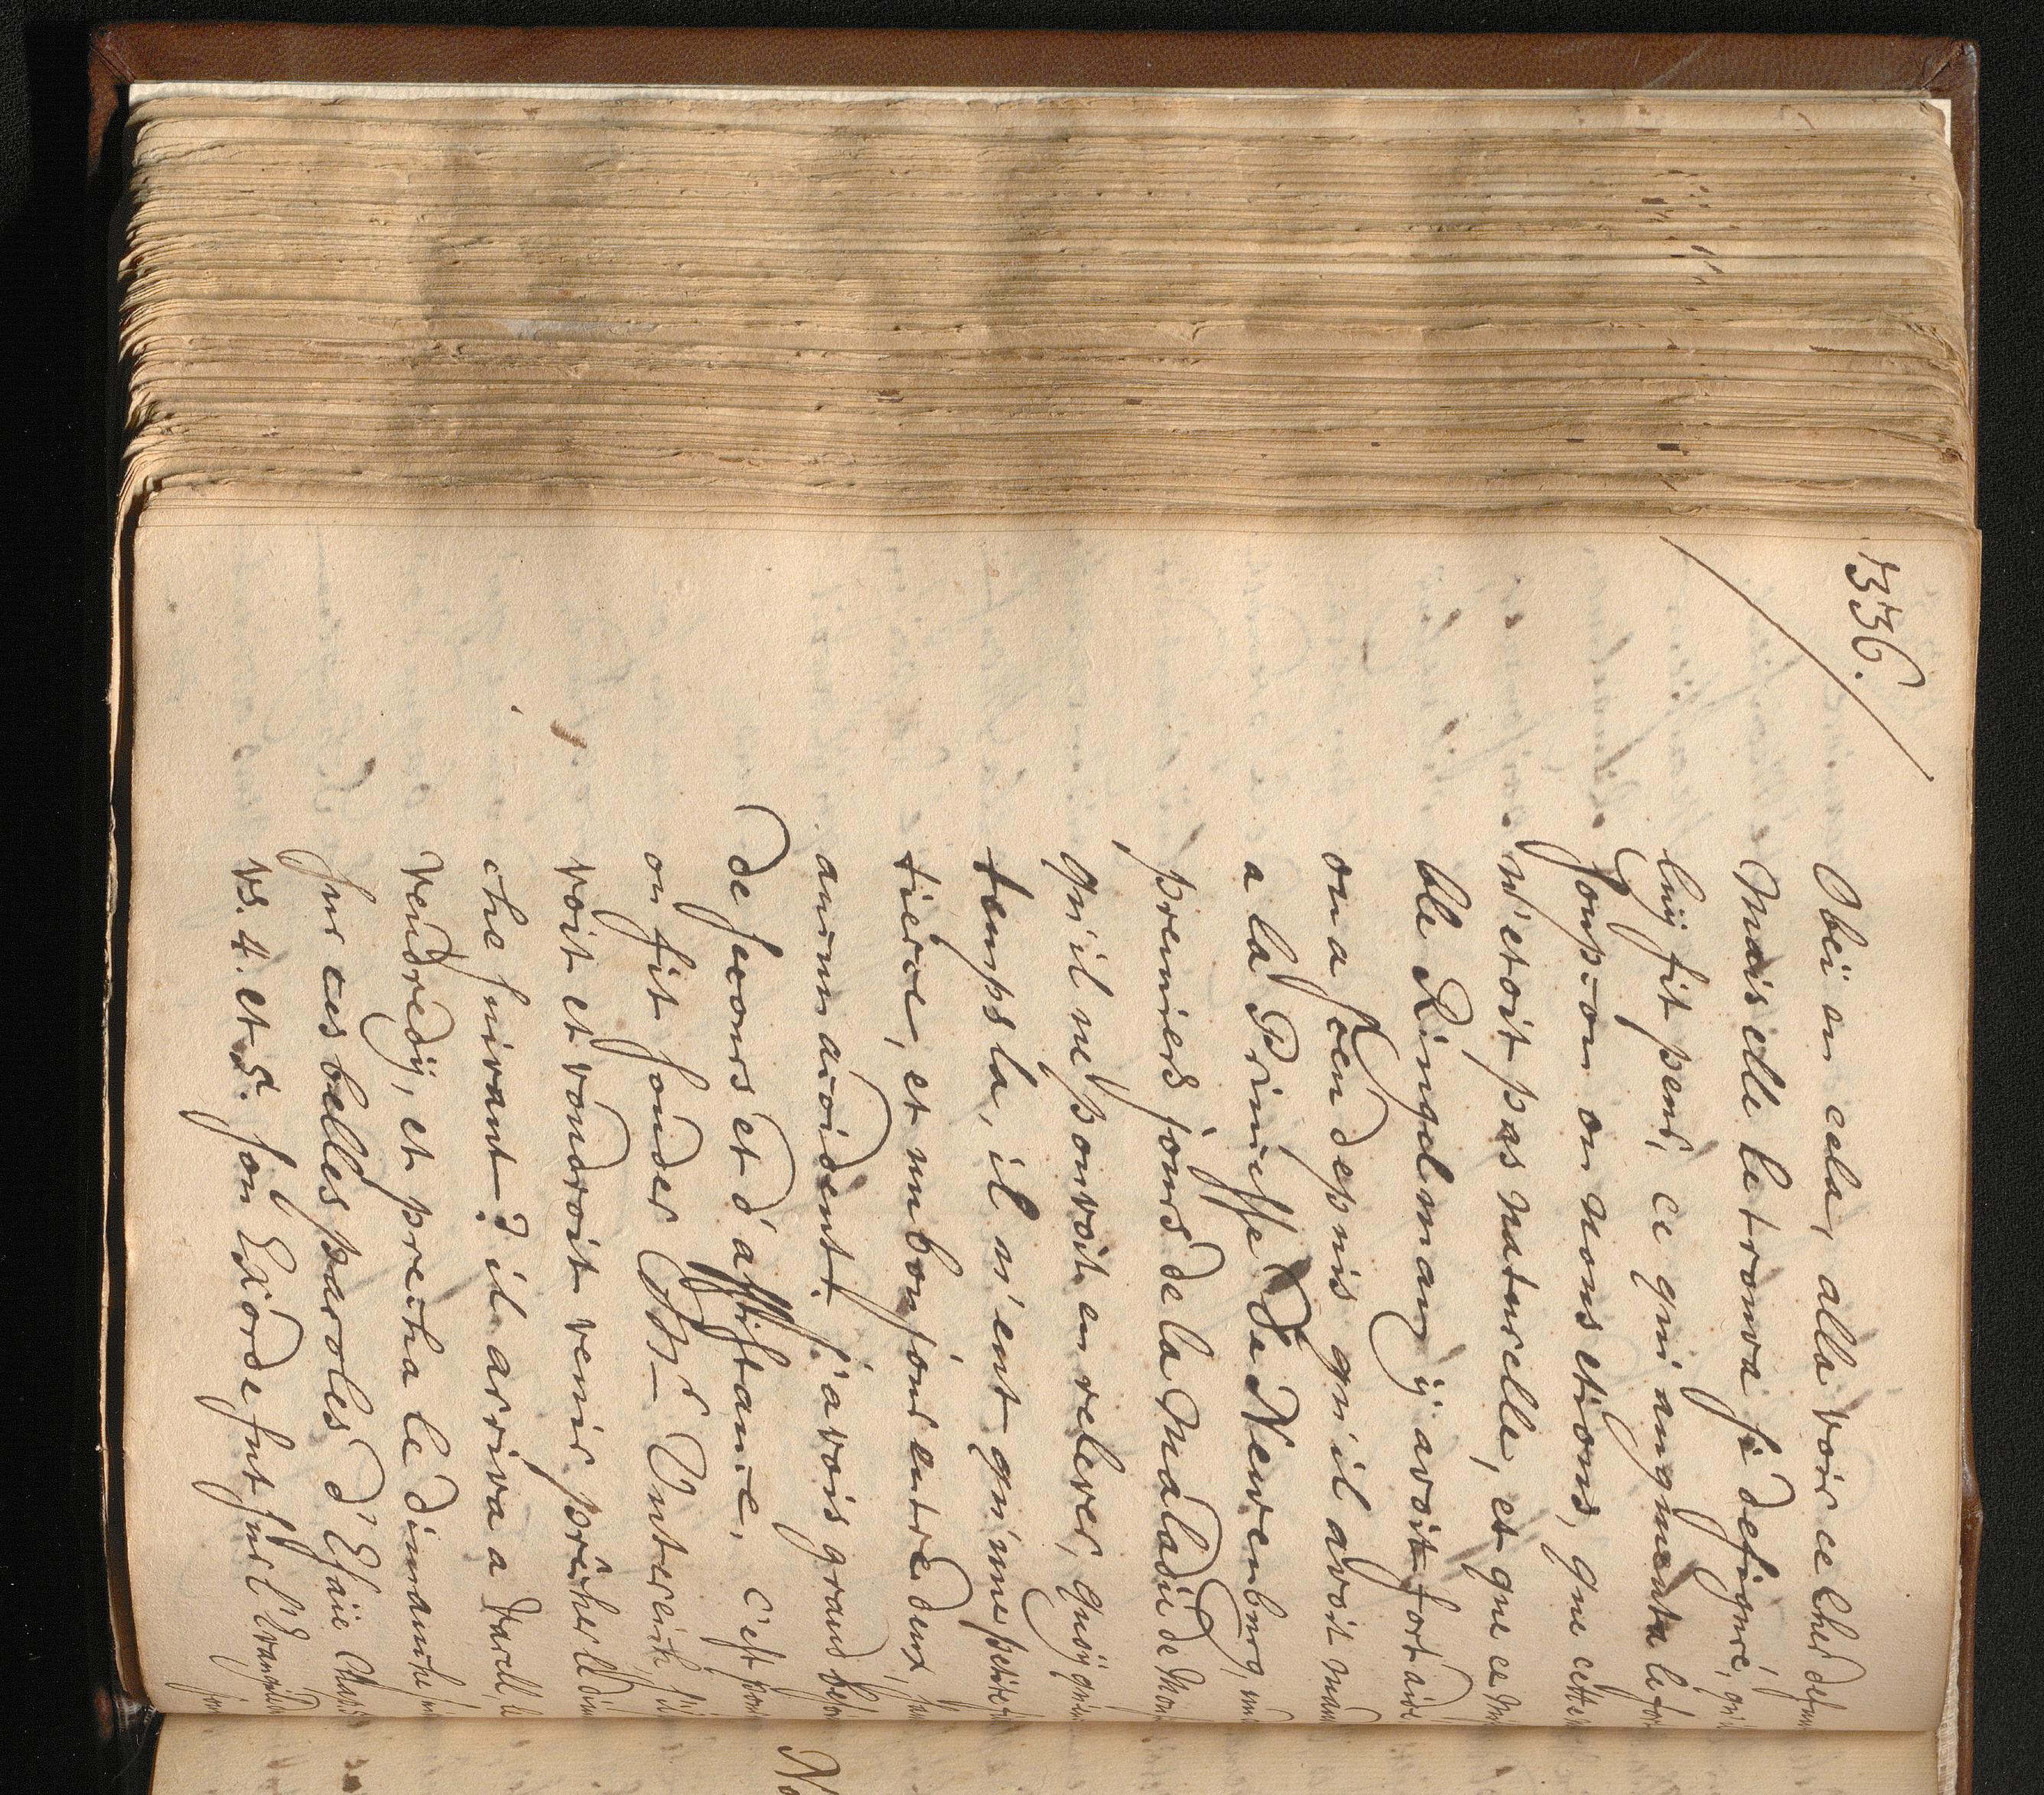 336.
Obeï en cela, alla voir ce cher defun
Mais elle le trouva si defiguré, qu'il
luy fit peur, ce qui augmenta le
soupçon où nous etions, que cette
n'etoit pas naturelle, et que ce
ble Ringelmann ÿ avoit fort aidé
on a sceu depuis qu'il avoit man
a la Princesse de Nieuwenburg, un
premiers jours de la Maladie de Mon
qu'il ne pouvoit en relever, quoÿque
temps la, il n'eut qu'une petite
tierce, et un bon jour entre deux,
aucun accident. j'avois grand beso
de secours et d'assistance. c'est pour
on fit sonder Mr Untereick, s'il
voit et voudroit venir prêcher le dim
che suivant? il arriva a Varell, le
vendredÿ, et precha le dimanche
sur ces belles paroles d'Esaïe
vs. 4. et 5. son Exorde fut sur l'Evangile
No